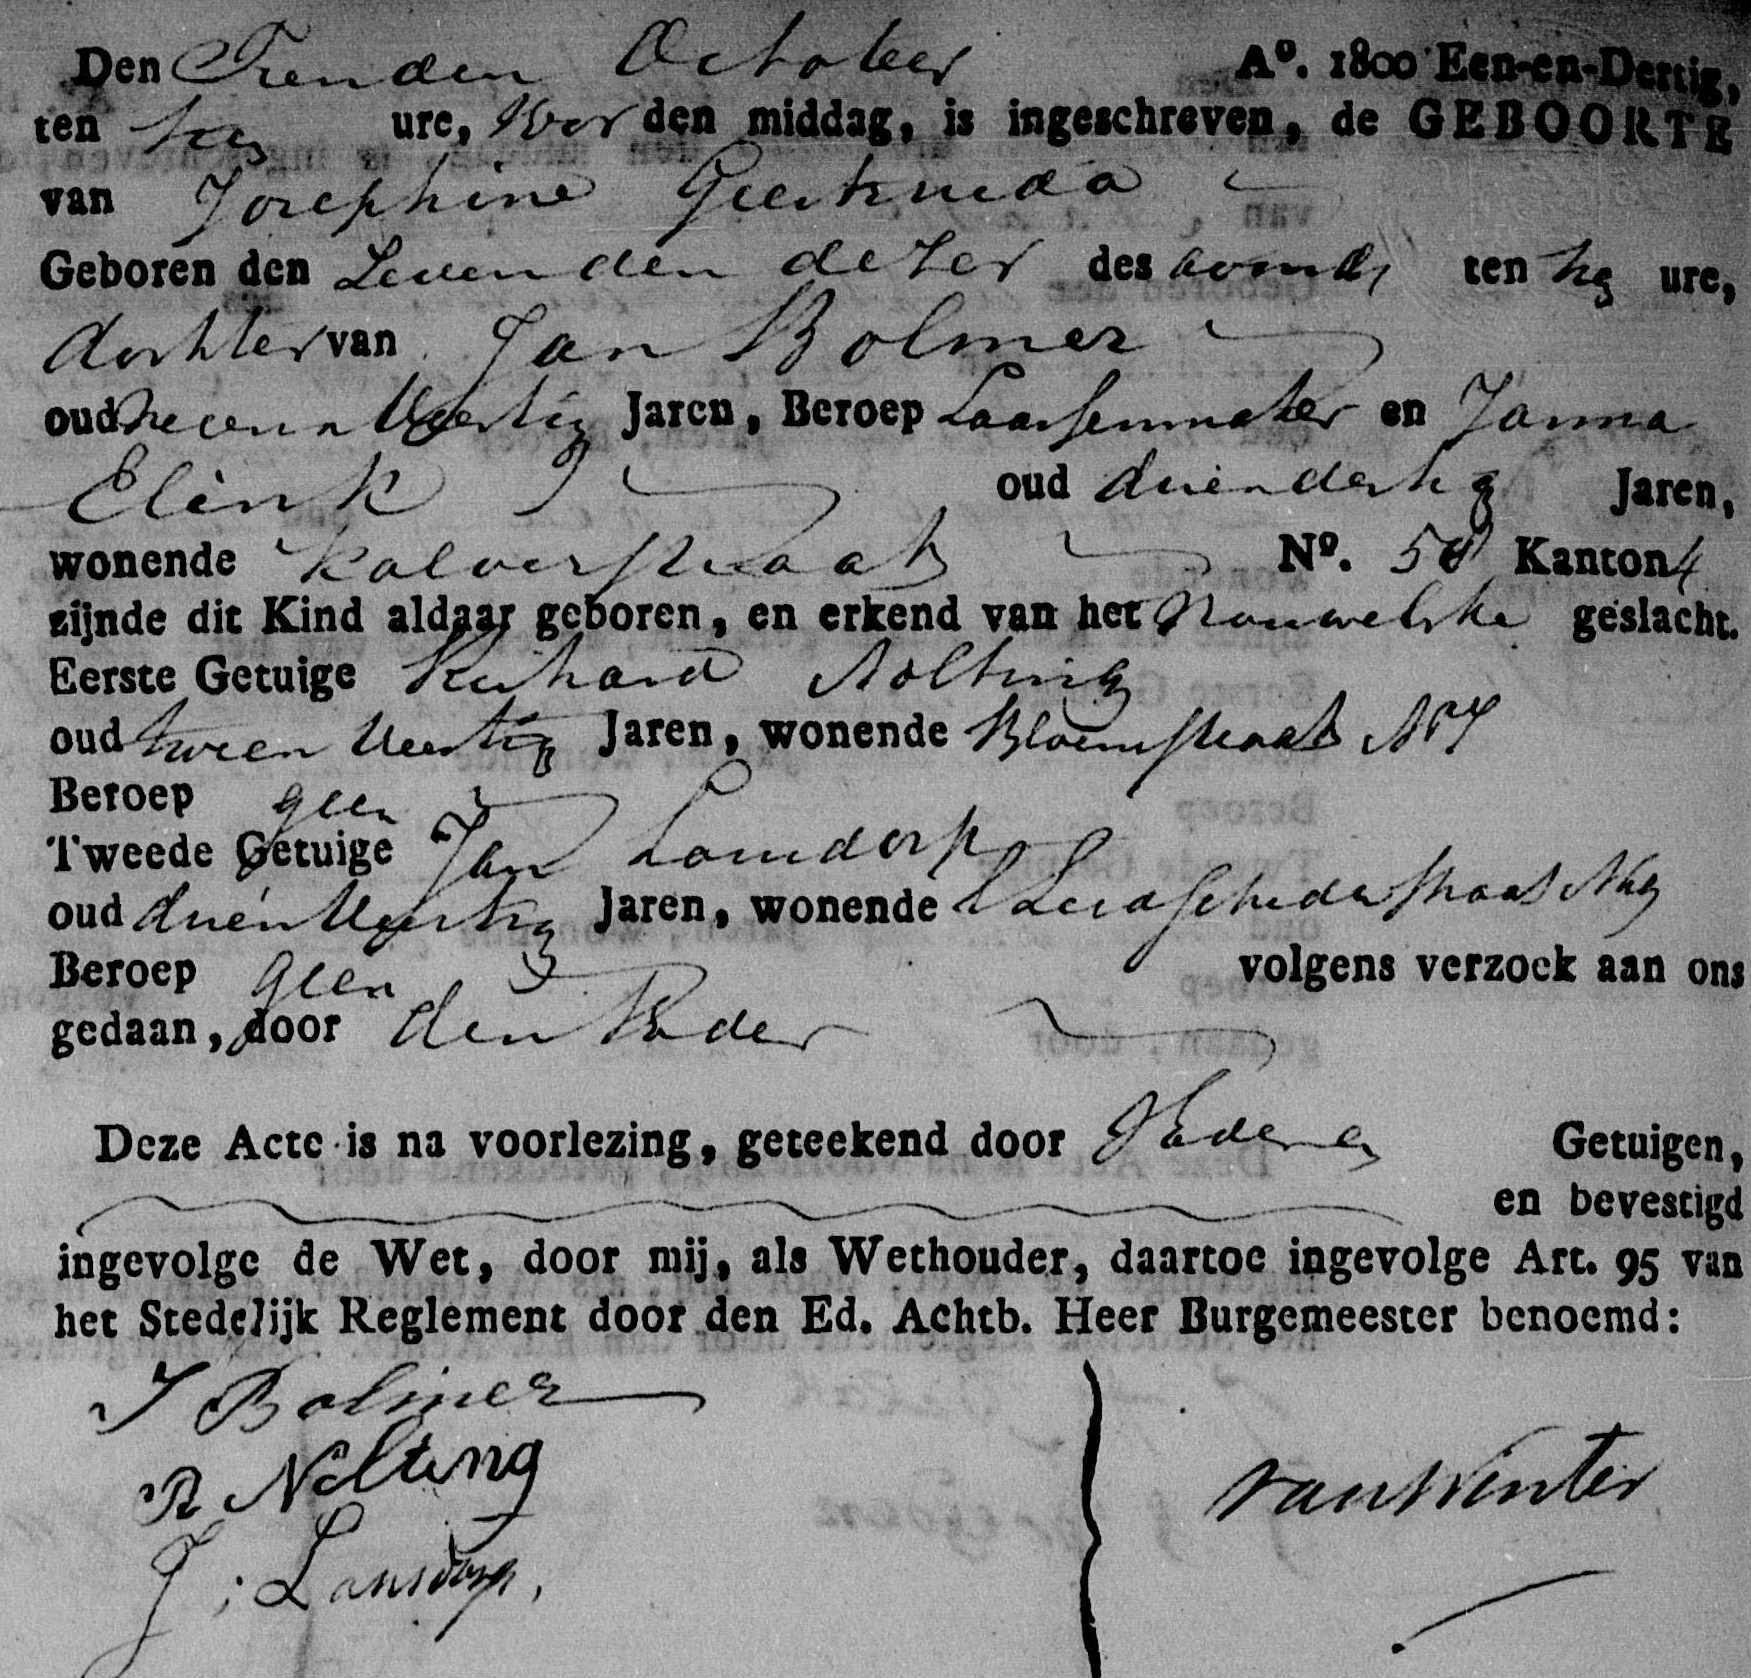 Den Tienden October Aº. 1800 Een-en-Dertig,
ten tien ure, Voor den middag, is ingeschreven, de GEBOORTE
van Josephine Geertruida
Geboren den Zevenden dezer des avonds ten ure,
dochter van Jan Bolmer
oud Veertig Jaren, Beroep Laarsenmaker en Janna
Elink oud drieendertig Jaren,
wonende Kalverstraat Nº. 58 Kanton 4
zijnde dit Kind aldaar geboren, en erkend van het Vrouwelyke geslacht.
Eerste Getuige Richard Nolting
oud tweenVeertig Jaren, wonende Bloemstraat
Beroep geen
Tweede Getuige Jan Lansdorp
oud drienVeertig Jaren, wonende Leidschedwarsstraat
Beroep geen volgens verzoek aan ons
gedaan, door den Vader
Deze Acte is na voorlezing, geteekend door Vader en Getuigen,
en bevestigd
ingevolge de Wet, door mij, als Wethouder, daartoe ingevolge Art. 95 van
het Stedelijk Reglement door den Ed. Achtb. Heer Burgemeester benoemd:
J Bolmer
R Nolting
J: Lansdorp,
van Winter